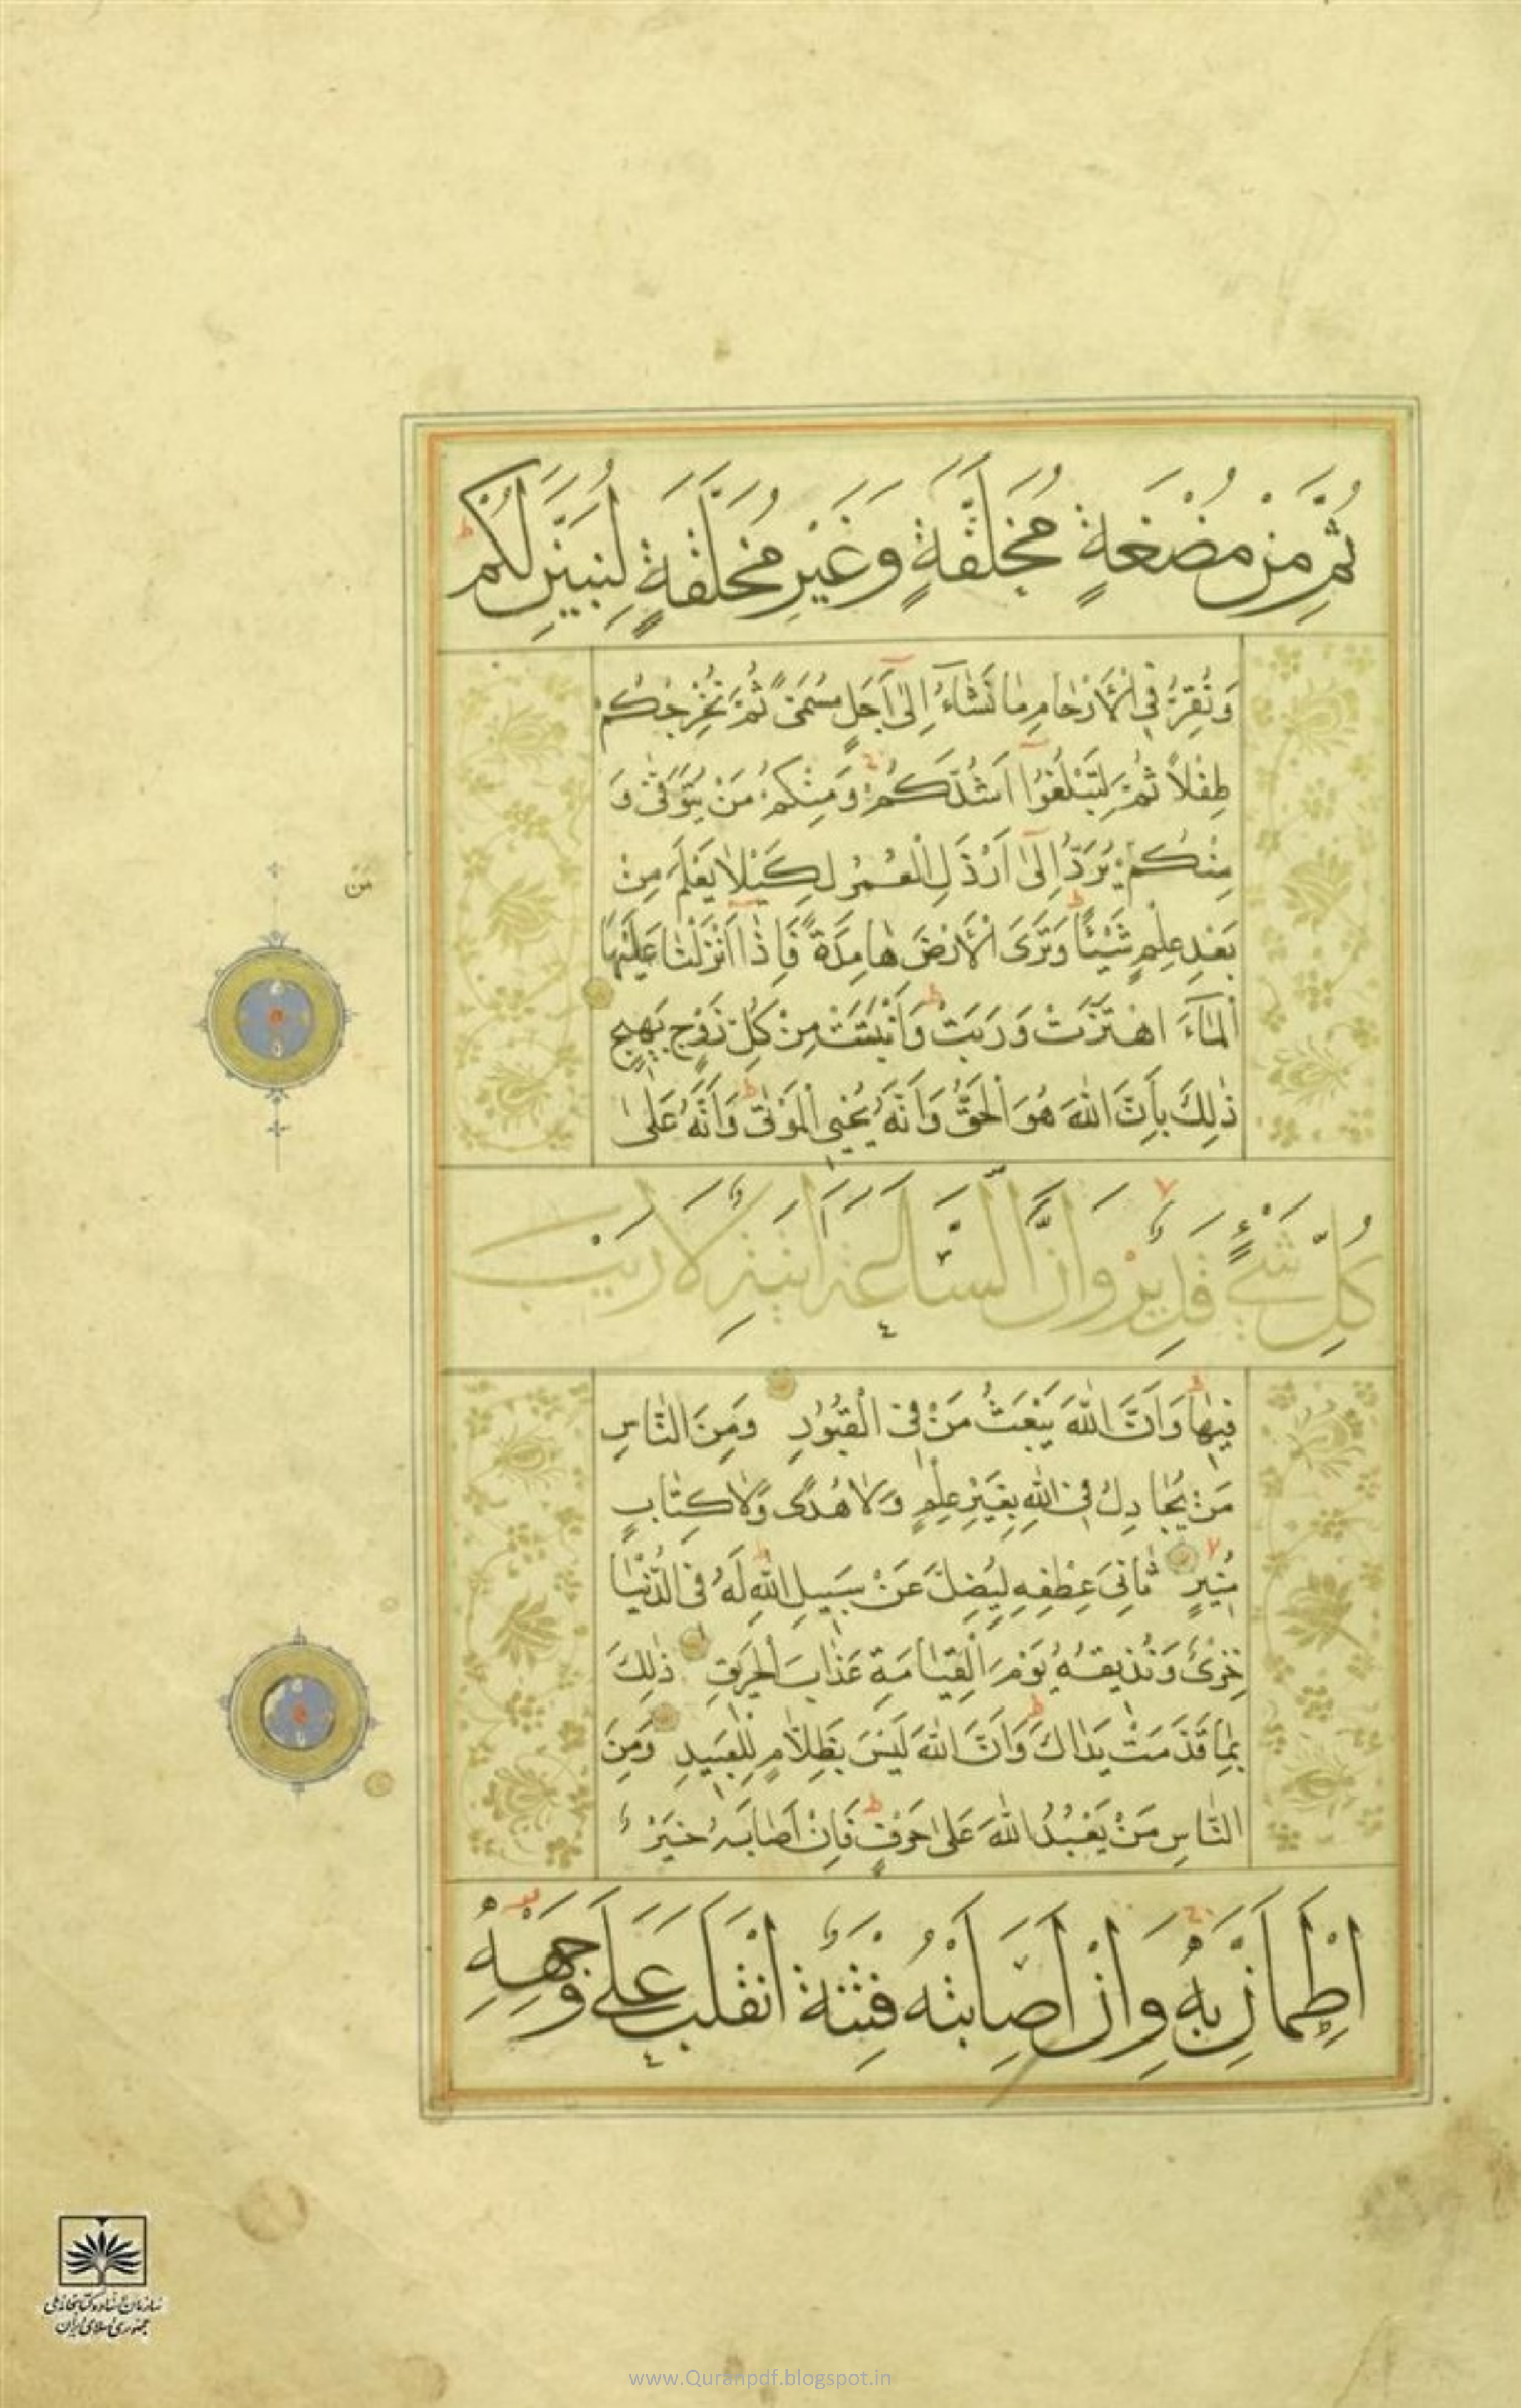 ثُمَّ مِنْ مُضْغَةٍ مُخَلَّقَةٍ وَغَيْرِ مُخَلَّقَةٍ لِنُبَيِّنَ لَكُمْ
وَنُقِرُّ فِي الْأَرْحَامِ مَا نَشَآءُ إِلٰى أَجَلٍ مُسَمًّى ثُمَّ نُخْرِجُكُمْ
طِفْلًا ثُمَّ لِتَبْلُغُوٓا أَشُدَّكُمْ وَمِنْكُمْ مَنْ يُتَوَفّٰى وَ
مِنْكُمْ مَنْ يُرَدُّ إِلٰٓى أَرْذَلِ الْعُمُرِ لِكَيْلَا يَعْلَمَ مِنْ
بَعْدِ عِلْمٍ شَيْئًا وَتَرَى الْأَرْضَ هَامِدَةً فَإِذَآ أَنْزَلْنَا عَلَيْهَا
الْمَآءَ اهْتَزَّتْ وَرَبَتْ وَأَنْبَتَتْ مِنْ كُلِّ زَوْجٍ بَهِيجٍ
ذٰلِكَ بِأَنَّ اللّٰهَ هُوَ الْحَقُّ وَأَنَّهُ يُحْيِي الْمَوْتٰى وَأَنَّهُ عَلٰى
كُلِّ شَيْءٍ قَدِيرٌ وَأَنَّ السَّاعَةَ اٰتِيَةٌ لَا رَيْبَ
فِيهَا وَأَنَّ اللّٰهَ يَبْعَثُ مَنْ فِي الْقُبُورِ وَمِنَ النَّاسِ
مَنْ يُجَادِلُ فِي اللّٰهِ بِغَيْرِ عِلْمٍ وَلَا هُدًى وَلَا كِتَابٍ
مُنِيرٍ ثَانِيَ عِطْفِهِ لِيُضِلَّ عَنْ سَبِيلِ اللّٰهِ لَهُ فِي الدُّنْيَا
خِزْيٌ وَنُذِيقُهُ يَوْمَ الْقِيَامَةِ عَذَابَ الْحَرِيقِ ذٰلِكَ
بِمَا قَدَّمَتْ يَدَاكَ وَأَنَّ اللّٰهَ لَيْسَ بِظَلَّامٍ لِلْعَبِيدِ وَمِنَ
النَّاسِ مَنْ يَعْبُدُ اللّٰهَ عَلٰى حَرْفٍ فَإِنْ أَصَابَهُ خَيْرٌ
اطْمَأَنَّ بِهِ وَإِنْ أَصَابَتْهُ فِتْنَةٌ انْقَلَبَ عَلٰى وَجْهِهِ
سازمان اسناد و کتابخانه ملی
جمهوری اسلامی ایران
www.Quranpdf.blogspot.in